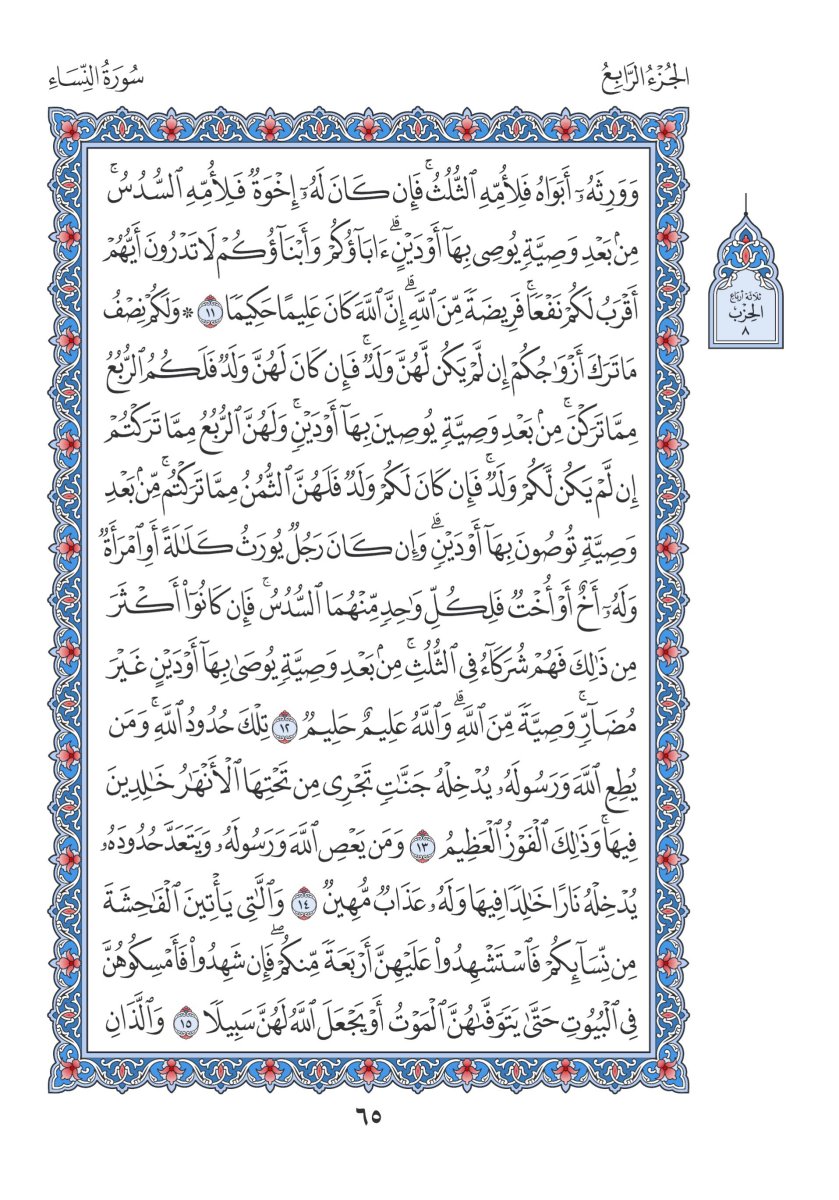 الجُزْءُ الرَّابِعُ
سُورَةُ النِّسَاءِ
وَوَرِثَهُۥٓ أَبَوَاهُ فَلِأُمِّهِ ٱلثُّلُثُۚ فَإِن كَانَ لَهُۥٓ إِخْوَةٌ فَلِأُمِّهِ ٱلسُّدُسُۚ
مِنۢ بَعْدِ وَصِيَّةٍ يُوصِى بِهَآ أَوْ دَيْنٍۗ ءَابَآؤُكُمْ وَأَبْنَآؤُكُمْ لَا تَدْرُونَ أَيُّهُمْ
أَقْرَبُ لَكُمْ نَفْعًاۚ فَرِيضَةً مِّنَ ٱللَّهِۗ إِنَّ ٱللَّهَ كَانَ عَلِيمًا حَكِيمًا ١١ ۞ وَلَكُمْ نِصْفُ
مَا تَرَكَ أَزْوَٰجُكُمْ إِن لَّمْ يَكُن لَّهُنَّ وَلَدٌۚ فَإِن كَانَ لَهُنَّ وَلَدٌ فَلَكُمُ ٱلرُّبُعُ
مِمَّا تَرَكْنَۚ مِنۢ بَعْدِ وَصِيَّةٍ يُوصِينَ بِهَآ أَوْ دَيْنٍۚ وَلَهُنَّ ٱلرُّبُعُ مِمَّا تَرَكْتُمْ
إِن لَّمْ يَكُن لَّكُمْ وَلَدٌۚ فَإِن كَانَ لَكُمْ وَلَدٌ فَلَهُنَّ ٱلثُّمُنُ مِمَّا تَرَكْتُمۚ مِّنۢ بَعْدِ
وَصِيَّةٍ تُوصُونَ بِهَآ أَوْ دَيْنٍۗ وَإِن كَانَ رَجُلٌ يُورَثُ كَلَٰلَةً أَوِ ٱمْرَأَةٌ
وَلَهُۥٓ أَخٌ أَوْ أُخْتٌ فَلِكُلِّ وَٰحِدٍ مِّنْهُمَا ٱلسُّدُسُۚ فَإِن كَانُوٓا۟ أَكْثَرَ
مِن ذَٰلِكَ فَهُمْ شُرَكَآءُ فِى ٱلثُّلُثِۚ مِنۢ بَعْدِ وَصِيَّةٍ يُوصَىٰ بِهَآ أَوْ دَيْنٍ غَيْرَ
مُضَآرٍّۚ وَصِيَّةً مِّنَ ٱللَّهِۗ وَٱللَّهُ عَلِيمٌ حَلِيمٌ ١٢ تِلْكَ حُدُودُ ٱللَّهِۚ وَمَن
يُطِعِ ٱللَّهَ وَرَسُولَهُۥ يُدْخِلْهُ جَنَّٰتٍ تَجْرِى مِن تَحْتِهَا ٱلْأَنْهَٰرُ خَٰلِدِينَ
فِيهَاۚ وَذَٰلِكَ ٱلْفَوْزُ ٱلْعَظِيمُ ١٣ وَمَن يَعْصِ ٱللَّهَ وَرَسُولَهُۥ وَيَتَعَدَّ حُدُودَهُۥ
يُدْخِلْهُ نَارًا خَٰلِدًا فِيهَا وَلَهُۥ عَذَابٌ مُّهِينٌ ١٤ وَٱلَّٰتِى يَأْتِينَ ٱلْفَٰحِشَةَ
مِن نِّسَآئِكُمْ فَٱسْتَشْهِدُوا۟ عَلَيْهِنَّ أَرْبَعَةً مِّنكُمْۖ فَإِن شَهِدُوا۟ فَأَمْسِكُوهُنَّ
فِى ٱلْبُيُوتِ حَتَّىٰ يَتَوَفَّىٰهُنَّ ٱلْمَوْتُ أَوْ يَجْعَلَ ٱللَّهُ لَهُنَّ سَبِيلًا ١٥ وَٱلَّذَانِ
ثلاثة أرباع
الحِزْب
٨
٦٥